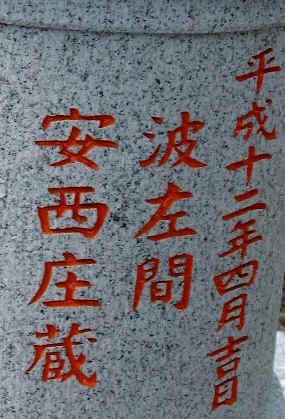 平成十二年四月吉日
波左間
安西庄蔵